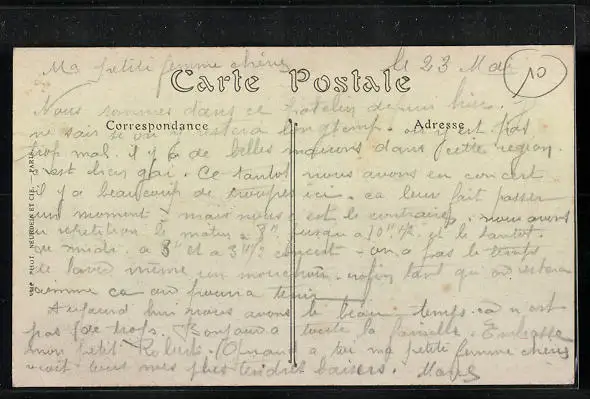 Ma petite femme chérie
le 23 Mai
10
Carte Postale
Nous sommes dans ce patelin depuis hier.
Correspondance
Adresse
ne sais si on y restera longtemp. on y est pas
trop mal. il y a de belles maisons dans cette région.
c'est bien gai. Ce tantot nous avons eu concert
il y a beaucoup de troupes ici. ca leur fait passer
un moment mais nous c'est le contraire. nous avons
eu repetition le matin a 8h jusqu'a 10h 1/2 et le tantot
a 3h 1/2 concert - on a pas le temps
de laver même un mouchoir. enfin tant qu'on restera
comme ca on pourra tenir
Aujourd'hui nous avons le beau temps. ca n'est
pas de trop. Bonjour a toute la famille. Embrasse
mon petit Robert. Quand a toi ma petite femme chérie
recoit tous mes plus tendres baisers.
PHOT. NEURDEIN ET CIE. - PARIS